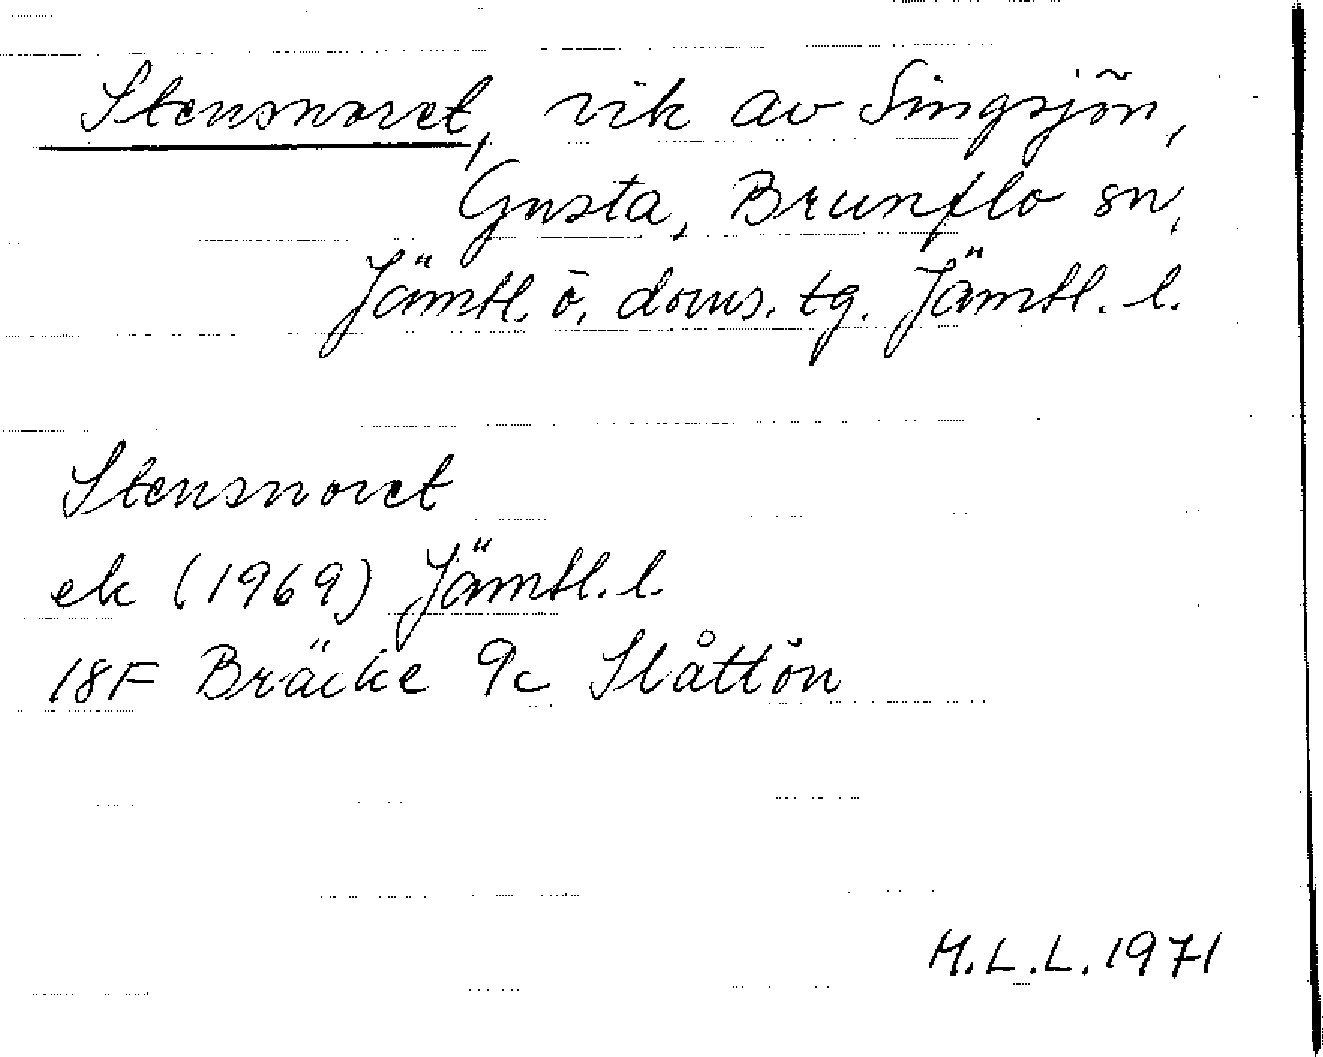 Stensnoret, vik av Singsjön,
Gusta, Brunflo sn,
Jämtl. ö. doms. tg. Jämtl. l.
Stensnoret
ek (1969) Jämtl. l.
18F Bräcke 9c Slåttön
M.L.L. 1971